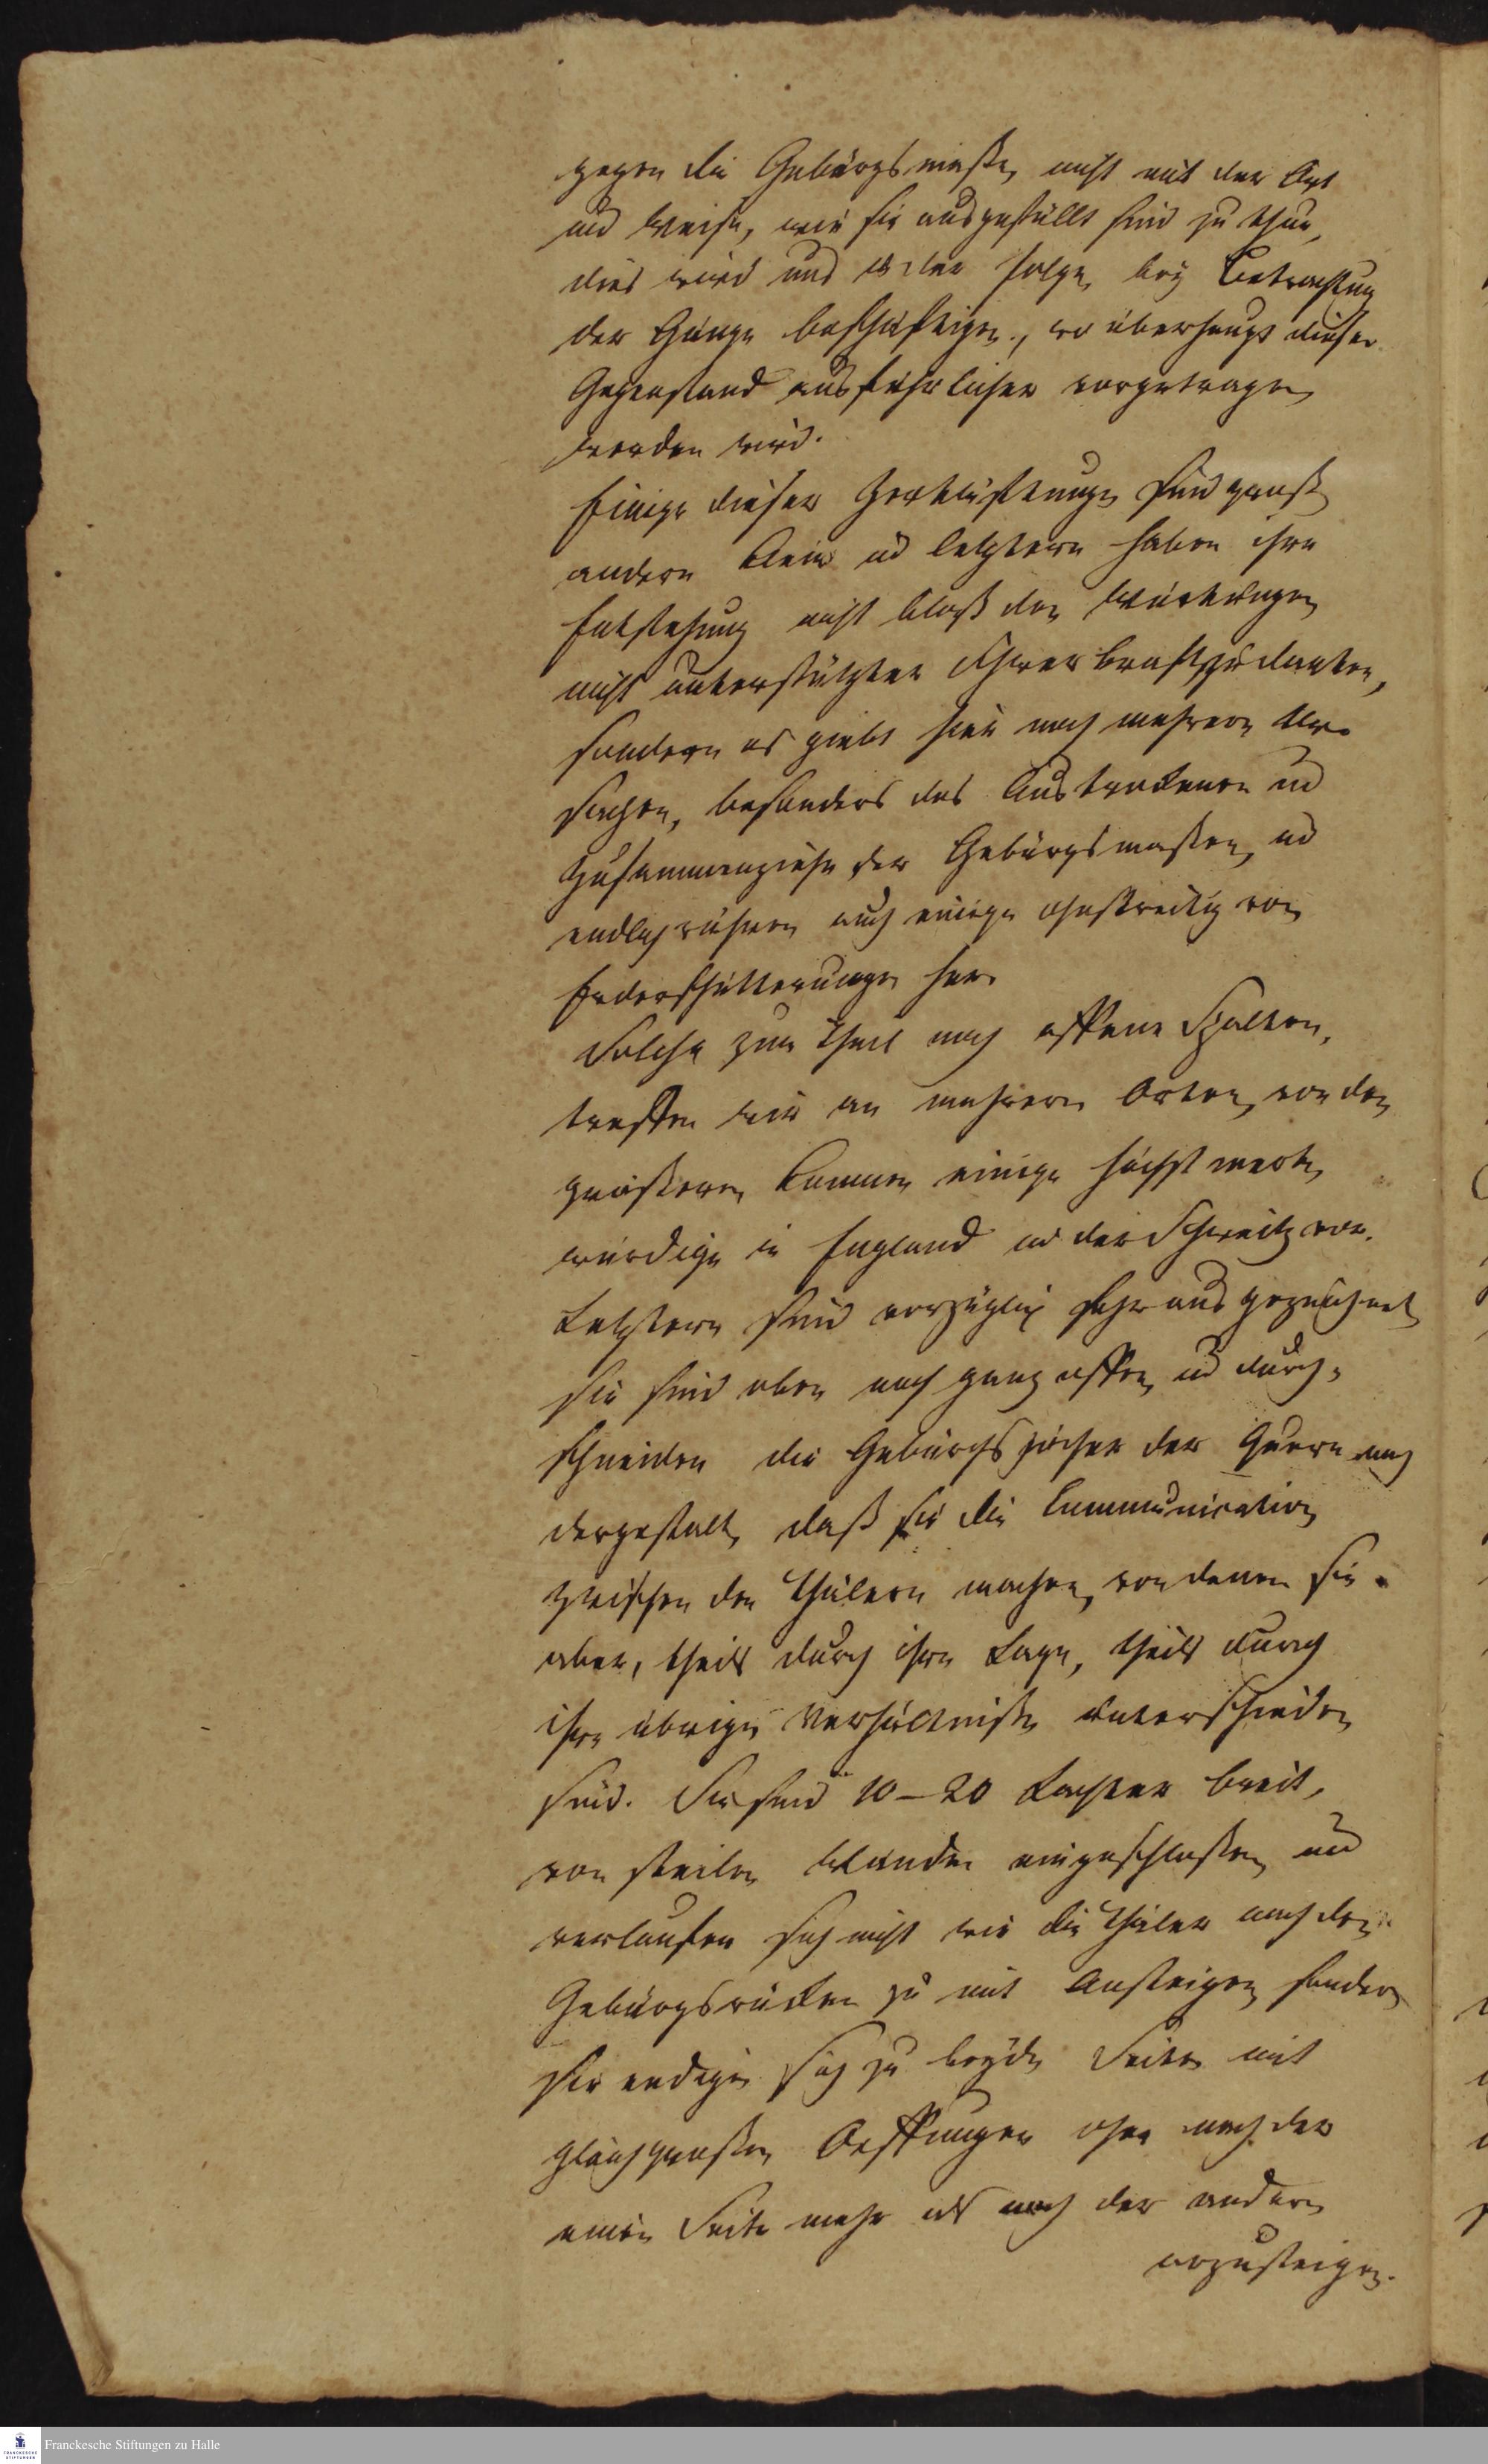 gegen die Gebürgsmaße, nicht mit der Art
und Weise, wie sie ausgefüllt sind zu thun,
dies wird uns in der Folge, bey Betrachtung
der Gänge beschäftigen, wo überhaupt dieser
Gegenstand ausführlicher vorgetragen
werden wird.
Einige dieser Zerklüftungen sind groß
andere klein und letztere haben ihre
Entstehung nicht bloß den Würkungen
nicht unterstützter Schwerkraft zu danken,
sondern es giebt hier noch mehrere Ur-
sachen, besonders das Austrocknen und
Zusammenziehn der Gebürgsmaßen, und
endlich rühren auch einige ohnstreitig von
Erderschütterungen her.
Solche zum Theil noch offene Spalten,
treffen wir an mehrern Orten, von den
größeren kommen einige höchst merk-
würdige in England und der Schweitz vor.
Letztere sind vorzüglich sehr ausgezeichnet
sie sind oben noch ganz offen, und durch-
schneiden die Gebürgsjöcher der Queere nach
dergestalt, daß sie die Communication
zwischen den Thälern machen, von denen sie
aber, theils durch ihre Lage, theils durch
ihre übrigen Verhältniße unterschieden
sind. Sie sind 10–20 Lachter breit,
von steilen Wänden eingeschloßen, und
verlaufen sich nicht wie die Thäler nach dem
Gebürgsrücken zu mit Ansteigen, sondern
sie endigen sich zu beyden Seiten mit
gleichgroßen Oeffnungen ohne nach der
einen Seite mehr als nach der andern
anzusteigen.
Franckesche Stiftungen zu Halle